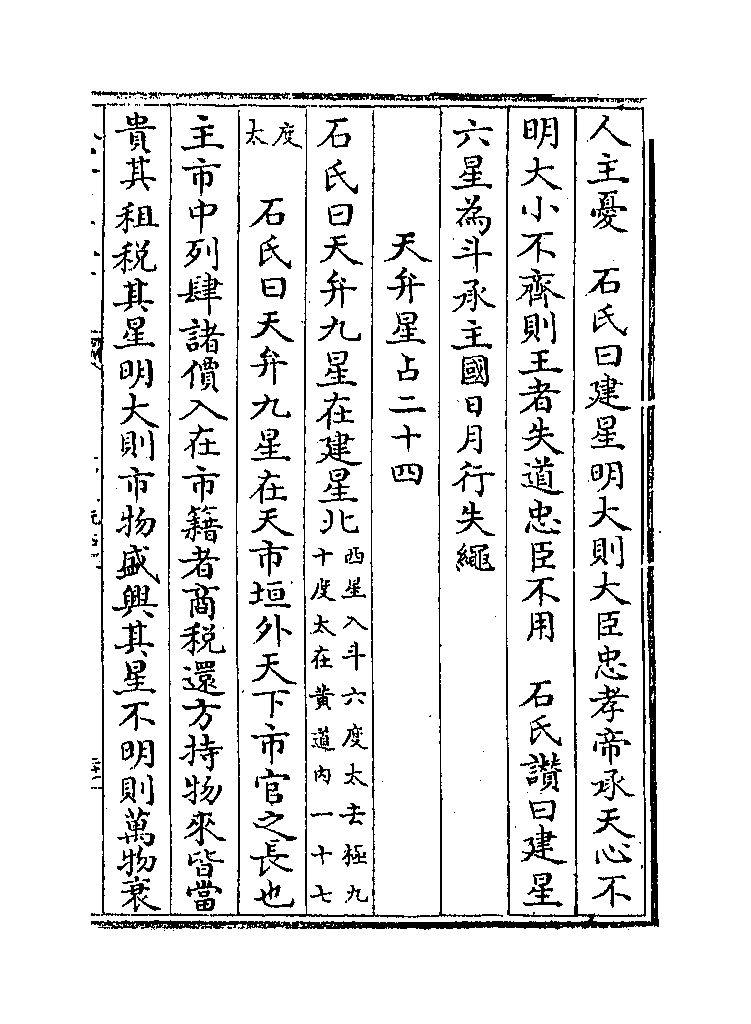 人主憂　石氏曰建星明大則大臣忠孝帝承天心不
明大小不齊則王者失道忠臣不用　石氏讃曰建星
六星為斗承主國日月行失繩
天弁星占二十四
石氏曰天弁九星在建星北西星入斗六度太去極九十度太在黄道内一十七
度太　石氏曰天弁九星在天市垣外天下市官之長也
主市中列肆諸價入在市籍者商税還方持物來皆當
貴其租税其星明大則市物盛興其星不明則萬物衰